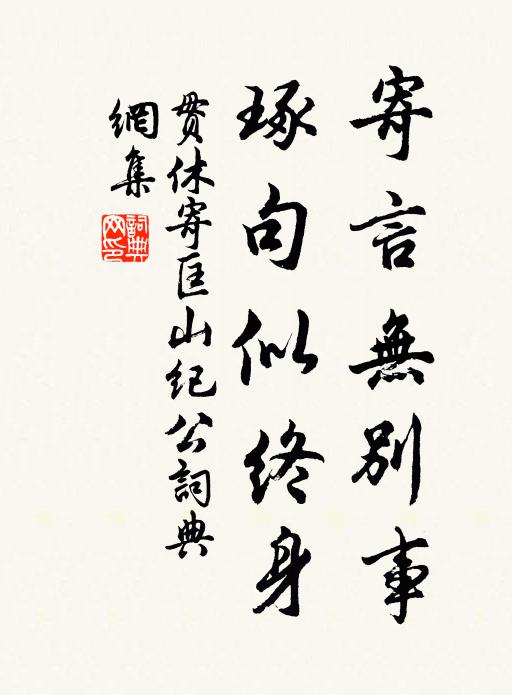 寄言無別事
琢句似終身
貫休寄匡山紀公詞典
網集
詞典網印